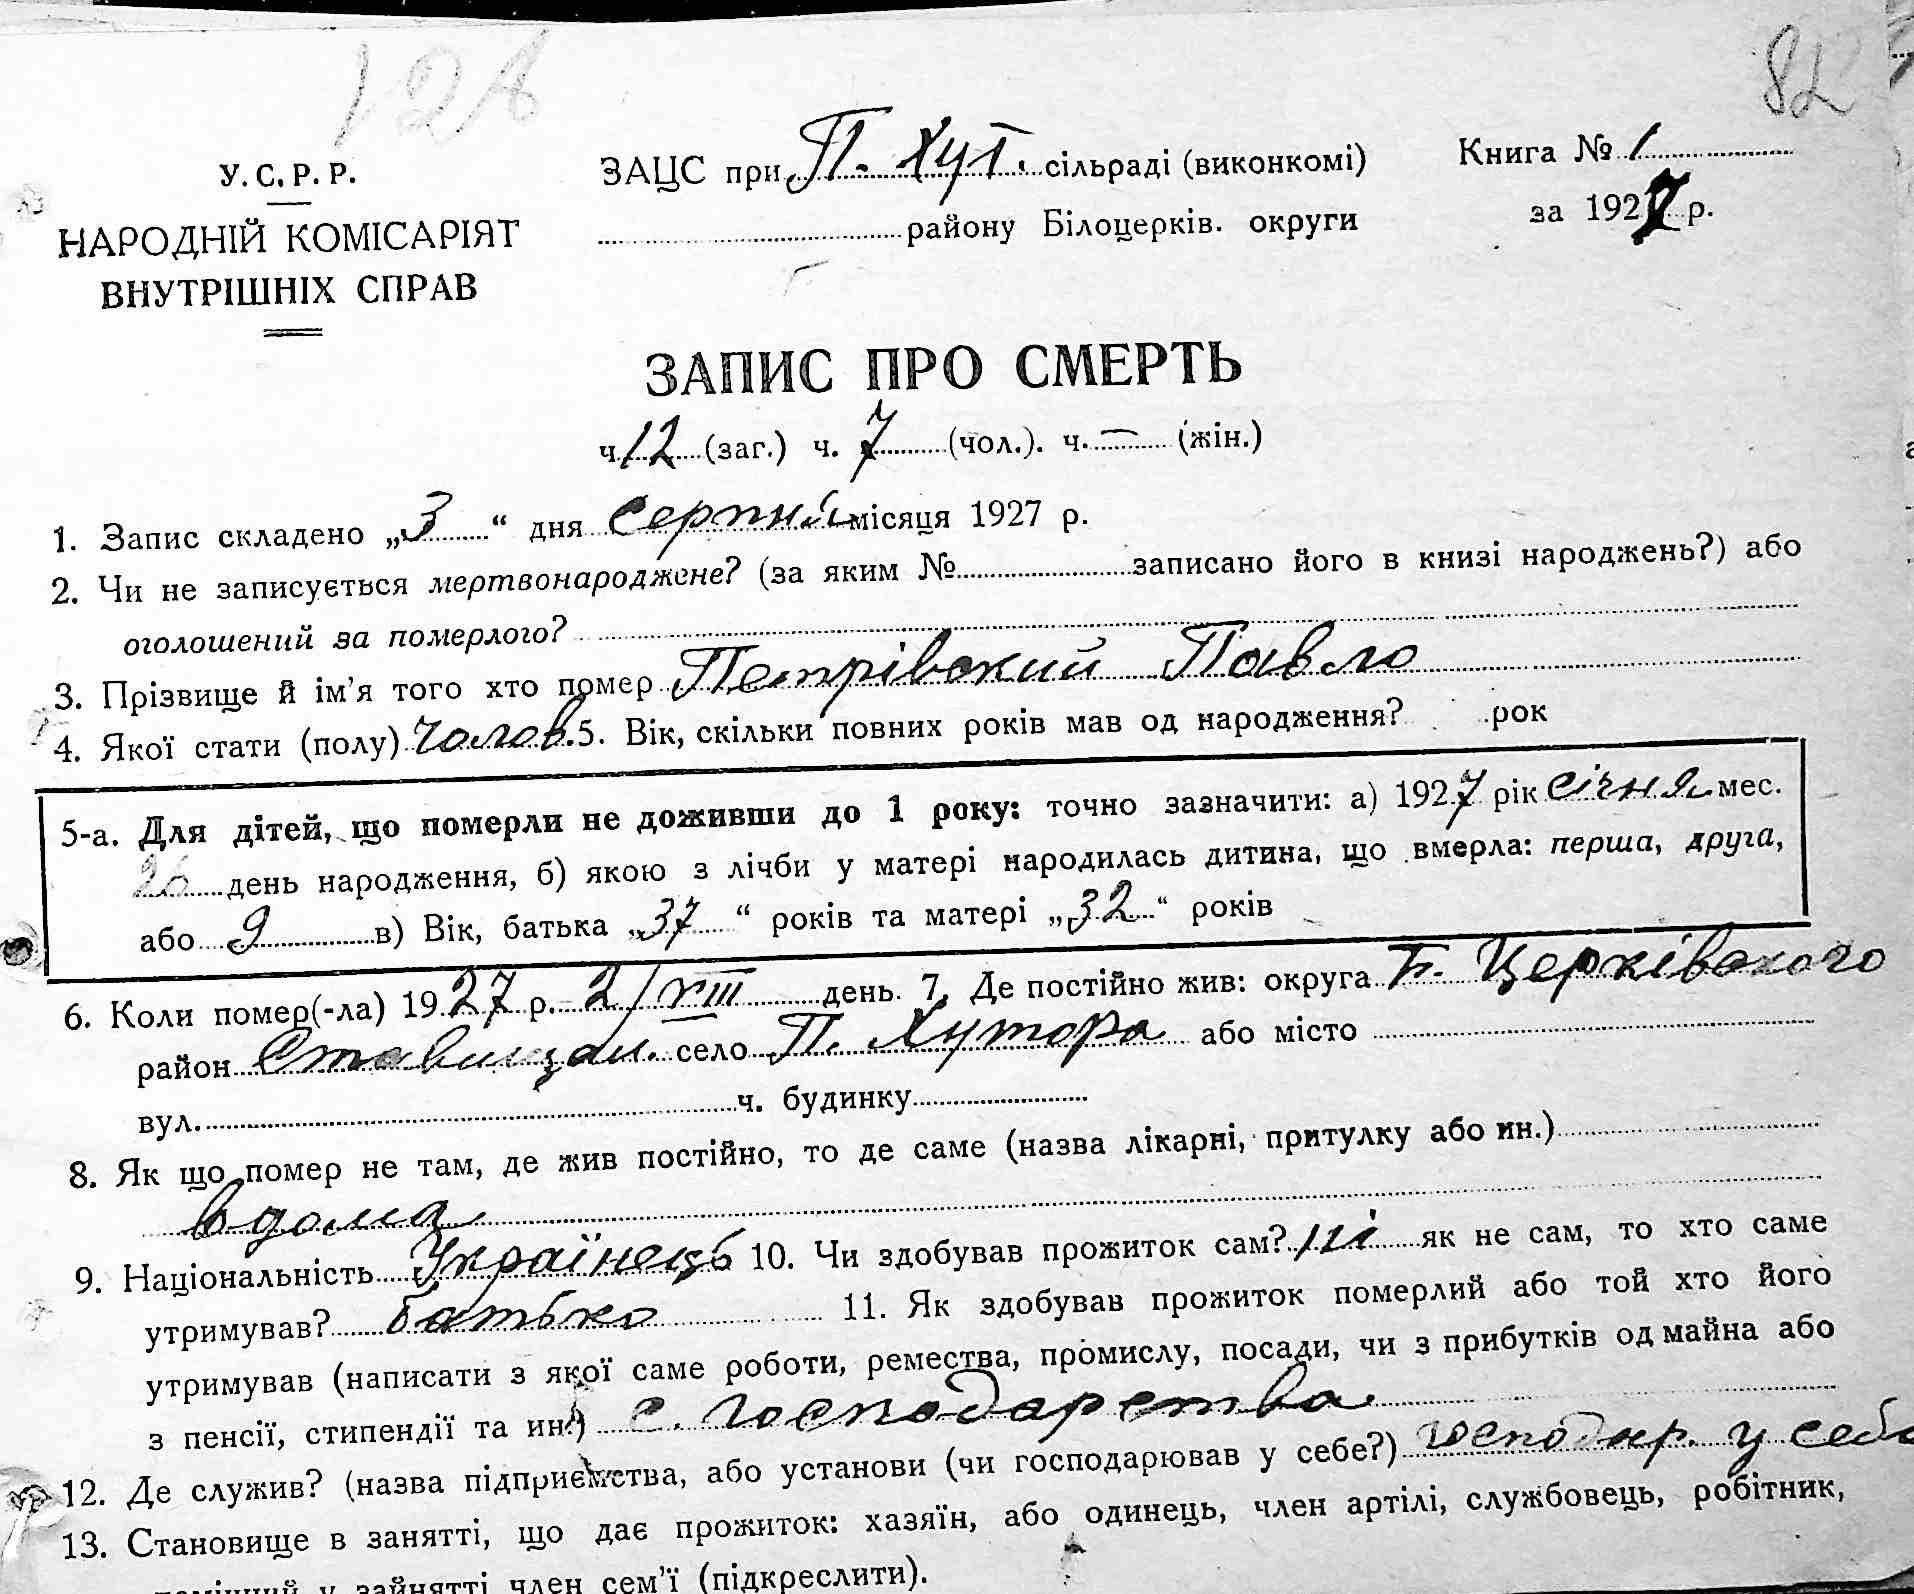 128
82
У.С.Р.Р.
НАРОДНІЙ КОМІСАРІЯТ
ВНУТРІШНІХ СПРАВ
ЗАЦС при П. Хут. сільраді (виконкомі)
району Білоцерків. округи
Книга № 1
за 1927 р.
ЗАПИС ПРО СМЕРТЬ
ч. 12 (заг.) ч. 7 (чол.). ч. — (жін.)
1. Запис складено „3“ дня серпня місяця 1927 р.
2. Чи не записується мертвонароджене? (за яким № записано його в книзі народжень?) або
оголошений за померлого?
3. Прізвище й ім’я того хто помер Петрівский Павло
4. Якої стати (полу) чолов. 5. Вік, скільки повних років мав од народження? рок
5-а. Для дітей, що померли не доживши до 1 року: точно зазначити: а) 1927 рік січня мес.
26 день народження, б) якою з лічби у матері народилась дитина, що вмерла: перша, друга,
або 9 в) Вік, батька „37“ років та матері „32“ років
6. Коли помер(-ла) 1927 р. 2/VIII день. 7. Де постійно жив: округа Б. Церківского
район Ставищан. село П. Хутора або місто
вул. ч. будинку
8. Як що помер не там, де жив постійно, то де саме (назва лікарні, притулку або ин.)
вдома
9. Національність Українець 10. Чи здобував прожиток сам? ні як не сам, то хто саме
утримував? батько 11. Як здобував прожиток померлий або той хто його
утримував (написати з якої саме роботи, ремества, промислу, посади, чи з прибутків од майна або
з пенсії, стипендії та ин.) с. господарства
12. Де служив? (назва підприємства, або установи (чи господарював у себе?) господар. у себе
13. Становище в занятті, що дає прожиток: хазяїн, або одинець, член артілі, службовець, робітник,
помічний у зайнятті член сем’ї (підкреслити).